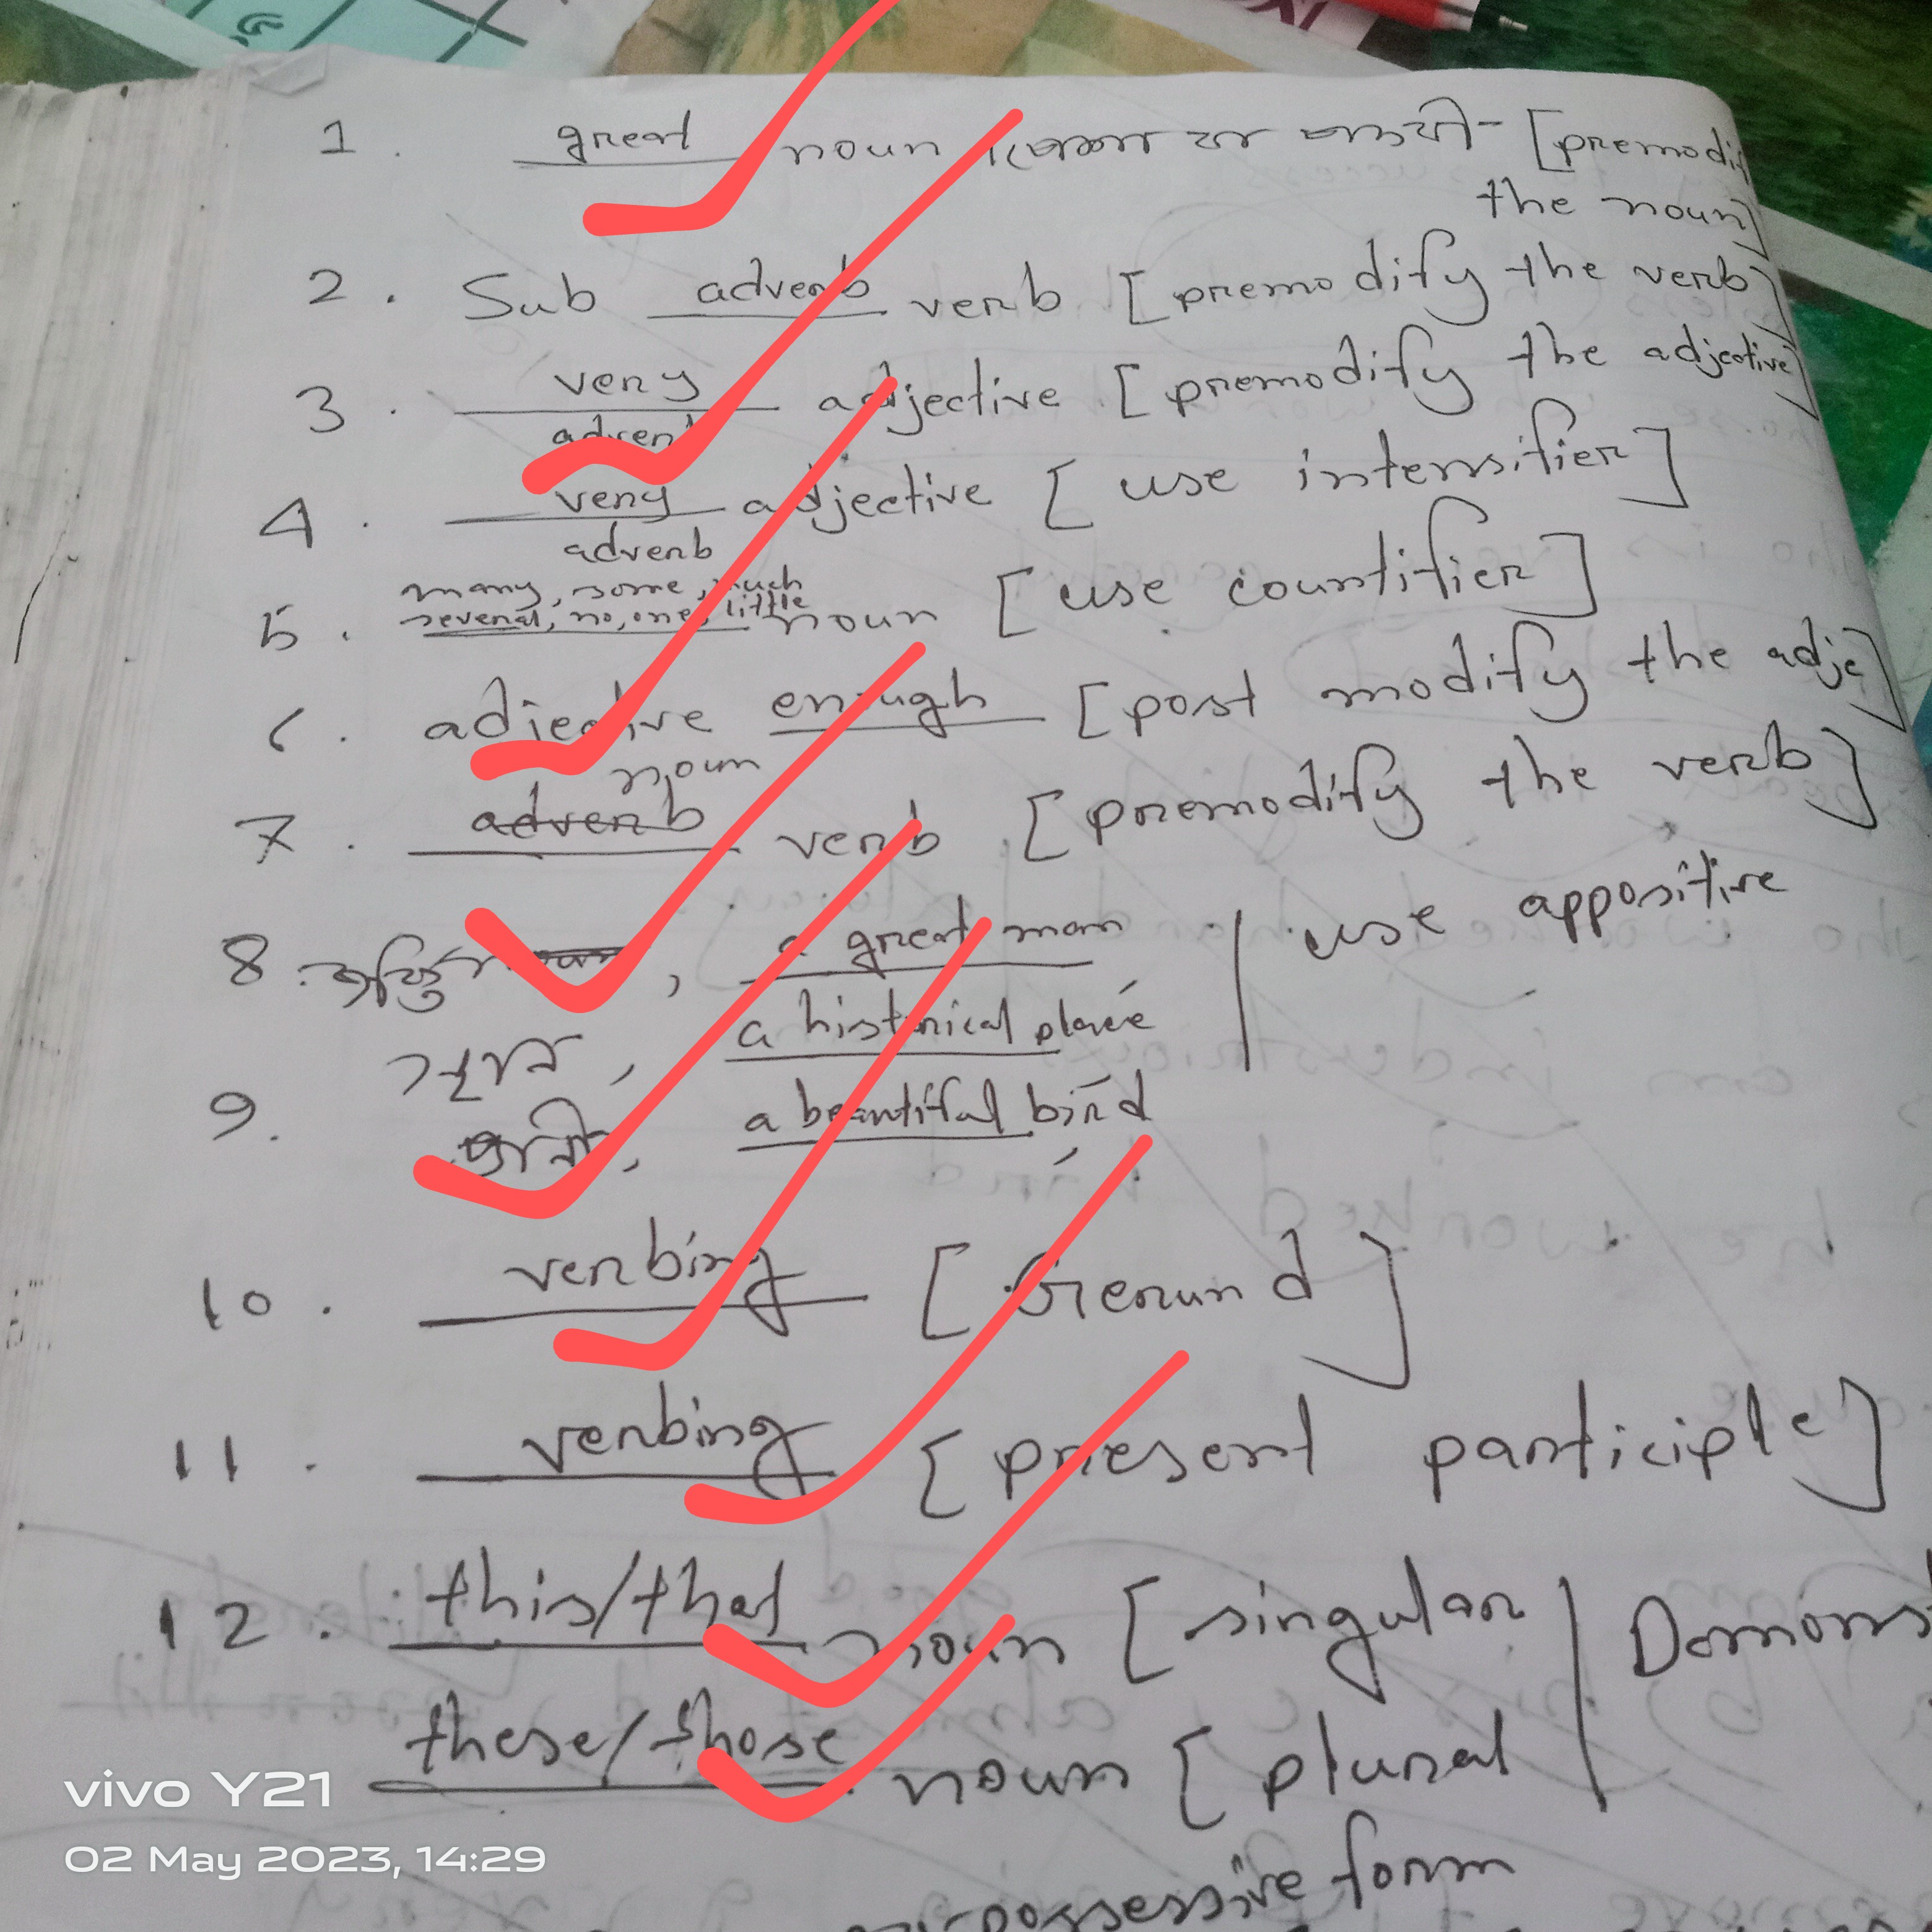 1. great noun [premodify
the noun]
2. Sub adverb verb [premodify the verb]
3. very adjective [premodify the adjective]
adverb
4. very adjective [use intensifier]
adverb
many, some, much
5. several, no, one, little noun [use countifier]
6. adjective enough [post modify the adje]
noun
7. adverb verb [premodify the verb]
8. , a great man | use appositive
স্থান, a historical place
9. , a beautiful bird
10. verbing [Gerund]
11. verbing [present participle]
12. this/that noun [singular | Demons
these/those noun [plural
possessive form
vivo Y21
02 May 2023, 14:29